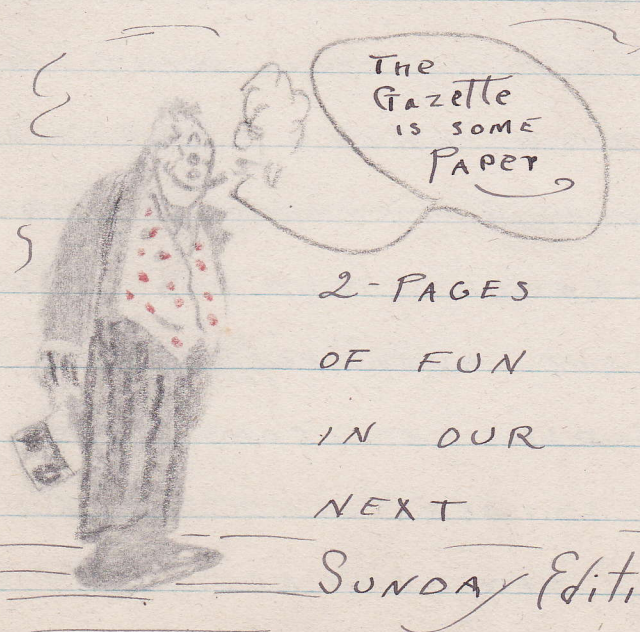 The
Gazette
IS SOME
PAPER
2-PAGES
OF FUN
IN OUR
NEXT
SUNDAY Editi